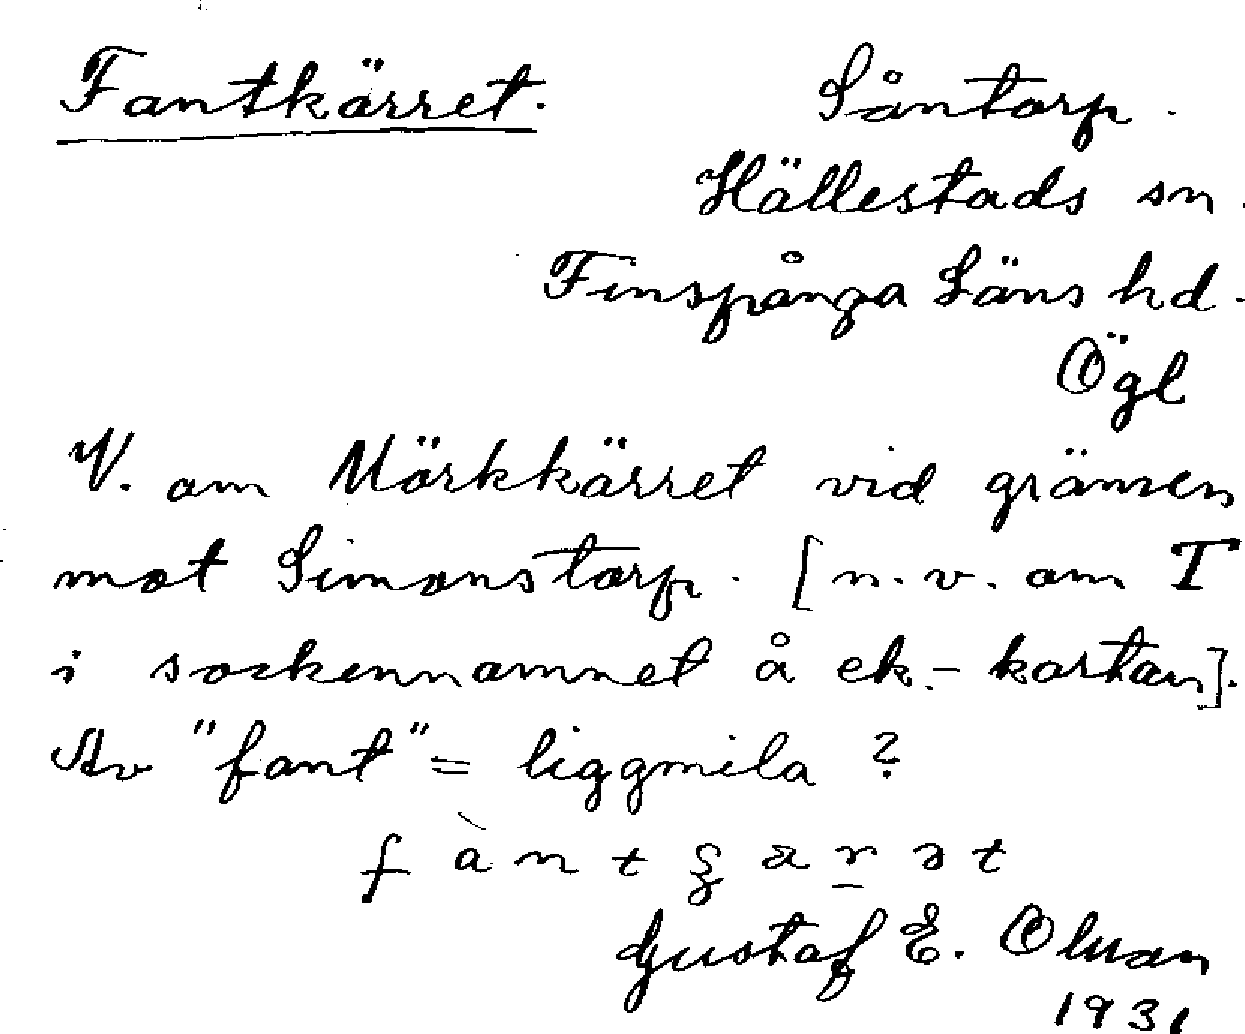 Fantkärret. Såntorp.
Hällestads sn.
Finspånga Läns hd.
Ögl
V. om Mörkkärret vid gränsen
mot Simonstorp. [n.v. om T
i sockennamnet å ek.-kartan].
Av "fant" = liggmila ?
Gustaf E. Olsson
1931